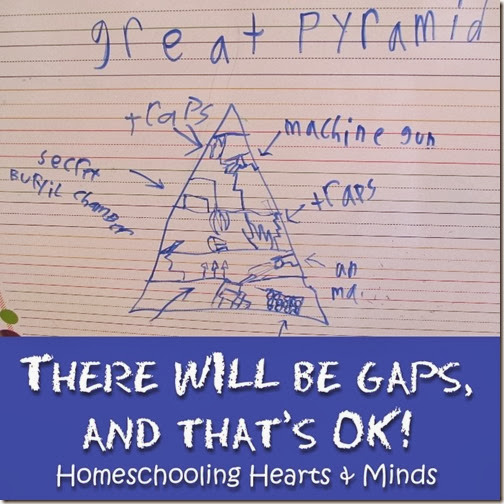 great pyramid
traps
machine gun
secrix
buryil chamber
traps
an
ma...
THERE WILL BE GAPS,
AND THAT'S OK!
Homeschooling Hearts & Minds